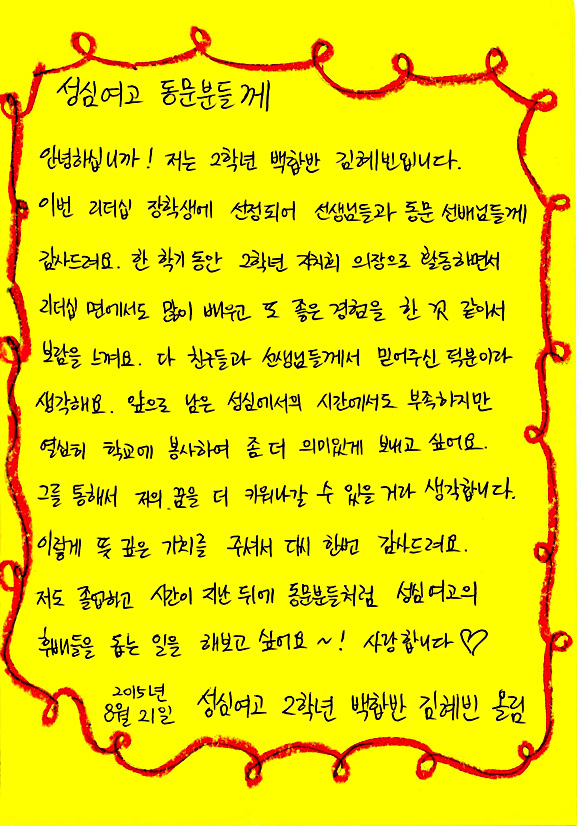 성심여고 동문분들께
안녕하십니까! 저는 2학년 백합반 김혜빈입니다.
이번 리더십 장학생에 선정되어 선생님들과 동문 선배님들께
감사드려요. 한 학기 동안 2학년 자치회 의장으로 활동하면서
리더십 면에서도 많이 배우고 또 좋은 경험을 한 것 같아서
보람을 느껴요. 다 친구들과 선생님들께서 믿어주신 덕분이라
생각해요. 앞으로 남은 성심에서의 시간에서도 부족하지만
열심히 학교에 봉사하여 좀 더 의미있게 보내고 싶어요.
그를 통해서 저의 꿈을 더 키워나갈 수 있을 거라 생각합니다.
이렇게 뜻 깊은 가치를 주셔서 다시 한번 감사드려요.
저도 졸업하고 시간이 지난 뒤에 동문분들처럼 성심여고의
후배들을 돕는 일을 해보고 싶어요~! 사랑합니다♡
2015년
8월 21일 성심여고 2학년 백합반 김혜빈 올림